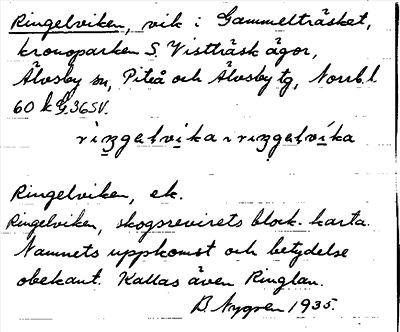 Ringelviken, vik i Gammelträsket,
kronoparken S. Vistträsk ägor,
Älvsby sn, Piteå och Älvsby tg, Norrb. l
60 k G.36SV.
riŋgeḷvika, riŋgeḷvíka
Ringelviken, ek.
Ringelviken, skogsrevirets block. karta.
Namnets uppkomst och betydelse
obekant. Kallas även Ringlan.
B. Nygren 1935.